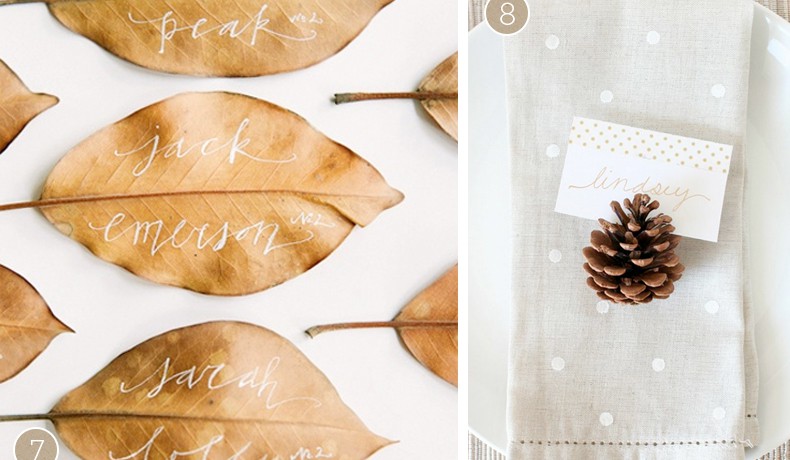 peak no. 2
jack
emerson no. 2
sarah
no. 2
7
8
lindsey